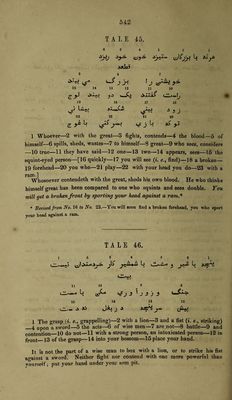 542
TALE 45.
هرکه با بزرگان ستیزد خون خود ریزد
قطعه
خویشتن را بزرگ می بیند
راست گفتند یک دو بیند لوچ
زود بینی شکسته پیشانی
تو که بازی بسر کنی با غوچ
1 Whoever—2 with the great—3 fights, contends—4 the blood—5 of
himself—6 spills, sheds, wastes—7 to himself—8 great—9 who sees, considers
—10 true—11 they have said—12 one—13 two—14 appears, sees—15 the
squint-eyed person—[16 quickly—17 you will see (i. e., find)—18 a broken—
19 forehead—20 you who—21 play—22 with your head you do—23 with a
ram.]
Whosoever contendeth with the great, sheds his own blood. He who thinks
himself great has been compared to one who squints and sees double. You
will get a broken front by sporting your head against a ram.*
* Revised from No. 16 to No. 23.—You will soon find a broken forehead, you who sport
your head against a ram.
TALE 46.
پنجه با شیر و مشت با شمشیر کار خردمندان نیست
بیت
جنگ و زور آوری مکن با مست
پیش سر پنجه در بغل نه دست
1 The grasp (i. e., grappelling)—2 with a lion—3 and a fist (i. e., striking)
—4 upon a sword—5 the acts—6 of wise men—7 are not—8 battle—9 and
contention—10 do not—11 with a strong person, an intoxicated person—12 in
front—13 of the grasp—14 into your bossom—15 place your hand.
It is not the part of a wise man to box with a lion, or to strike his fist
against a sword. Neither fight nor contend with one more powerful than
yourself; put your hand under your arm pit.